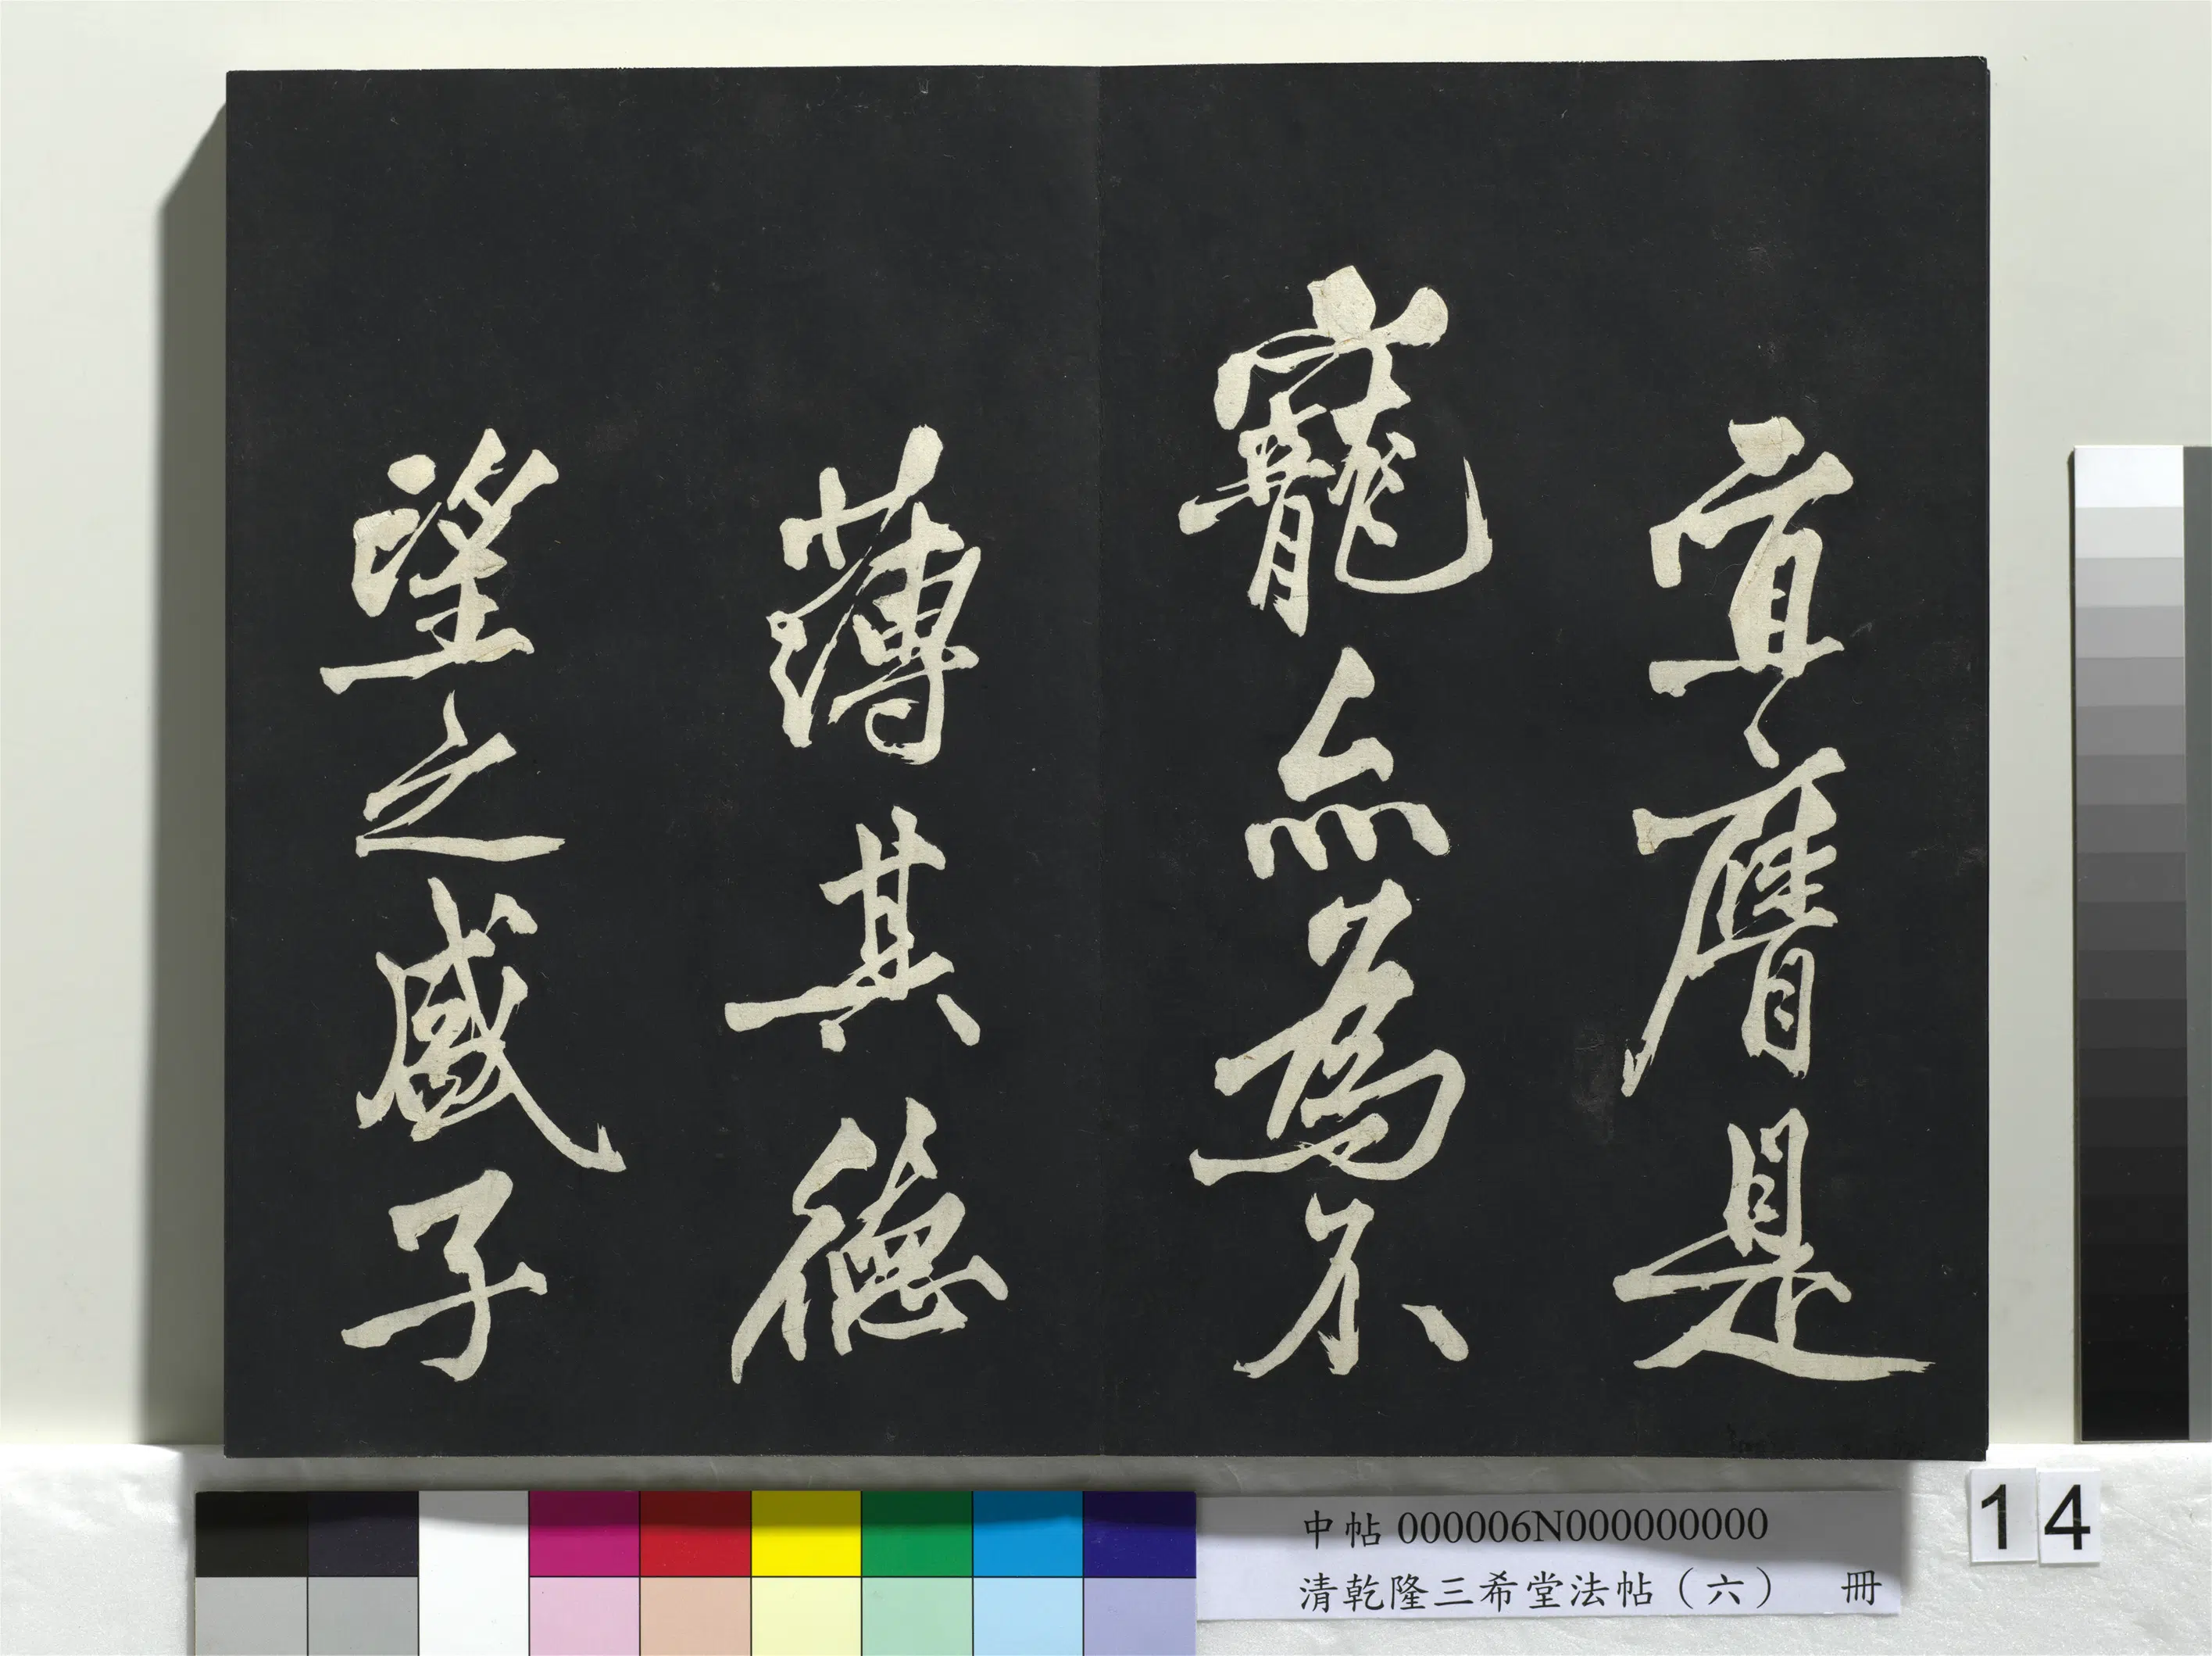 宜膺是
寵亦為不
薄其德
望之盛子
中帖 000006N000000000
清乾隆三希堂法帖（六） 冊
14